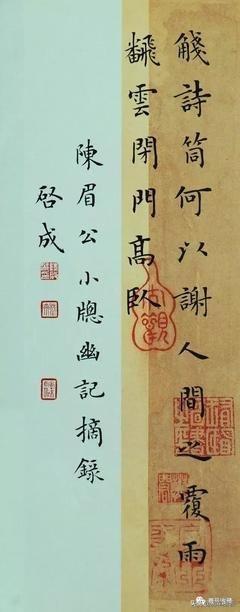 詩筒何以謝人間之覆雨
飜雲閉門高臥
陳眉公小牕幽記摘錄
启成